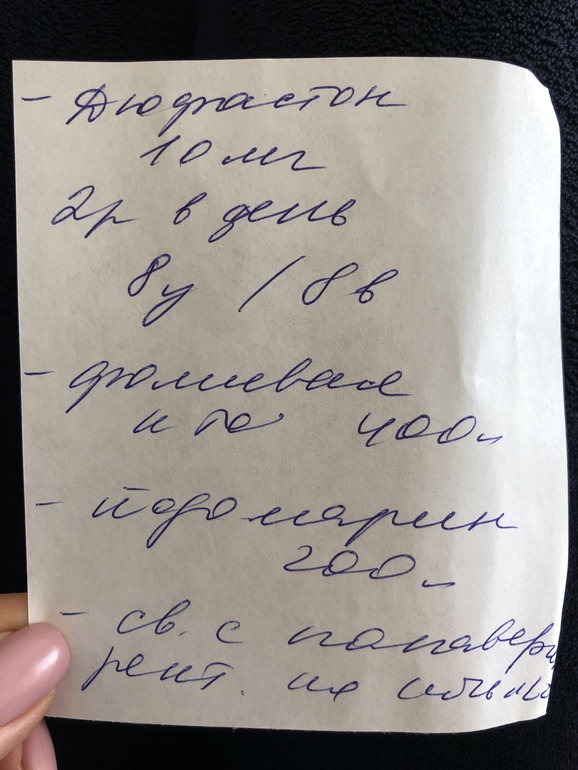 - Дюфастон
10 мг
2р в день
8у / 8в
- фолиевая
к та 400
- йодомарин
200
- св. с папавери
рект. на ночь